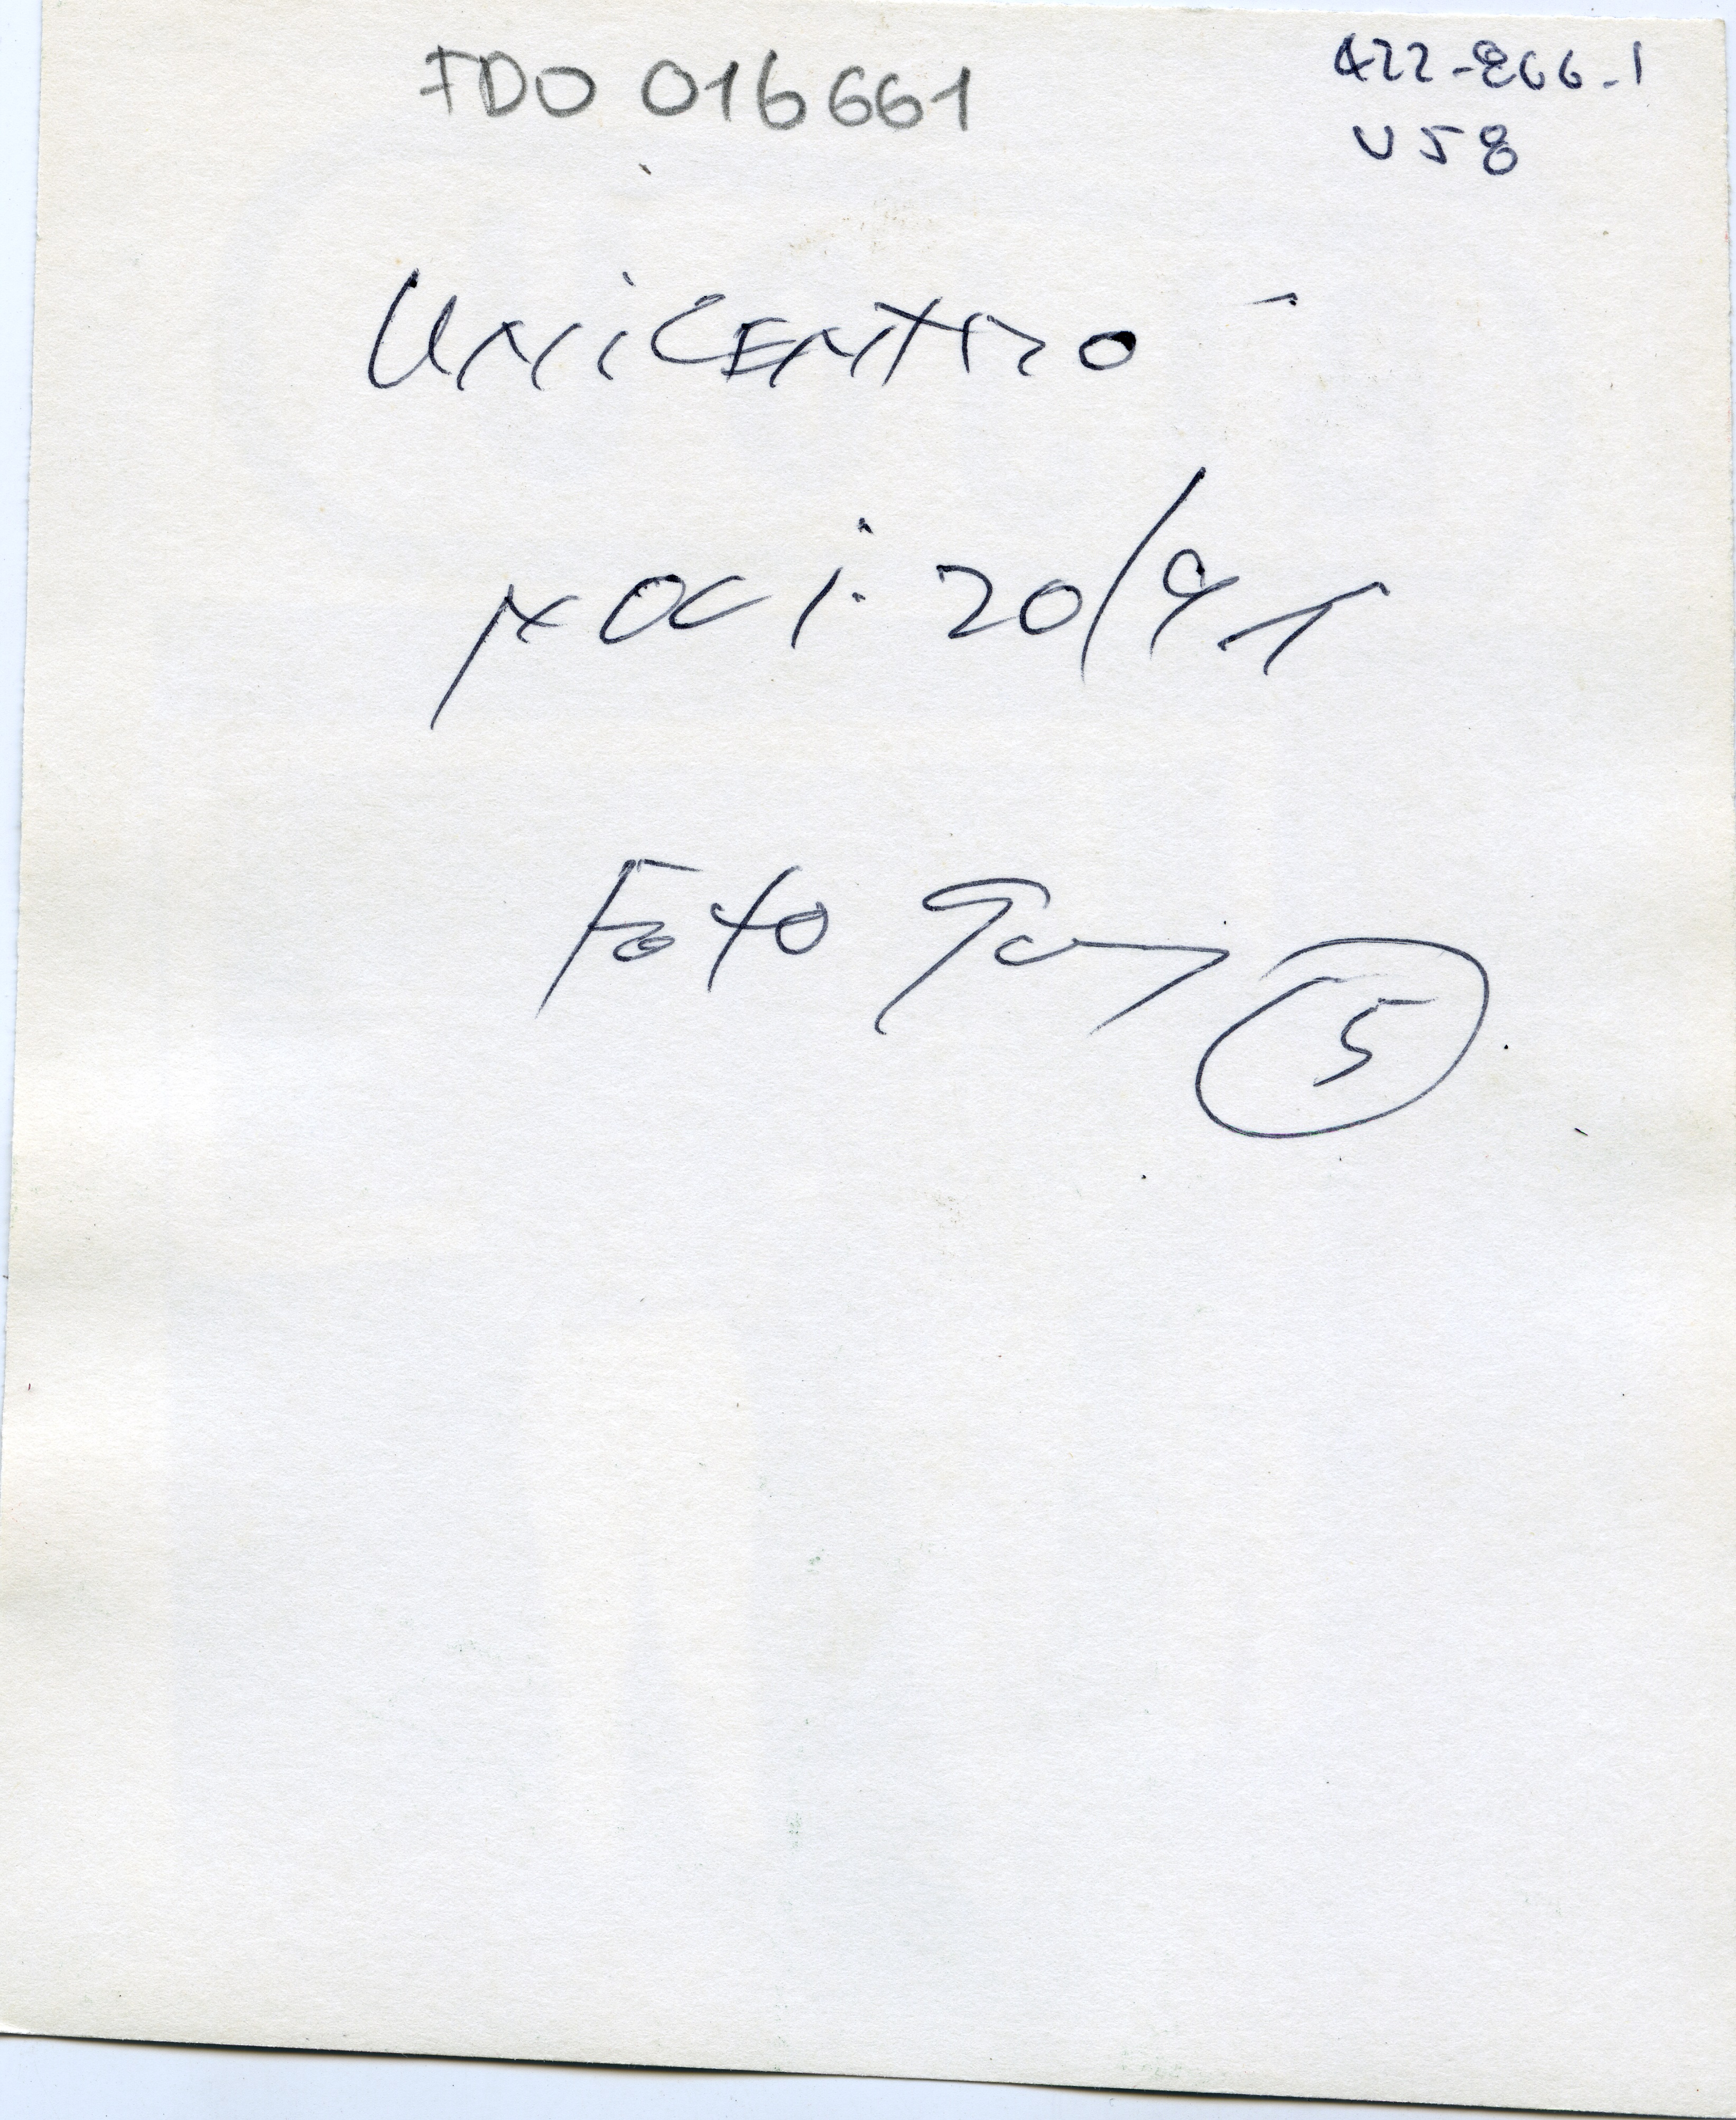 FDO 016661
422-866-1
U58
UNiCENTRO
20/91
Foto
5